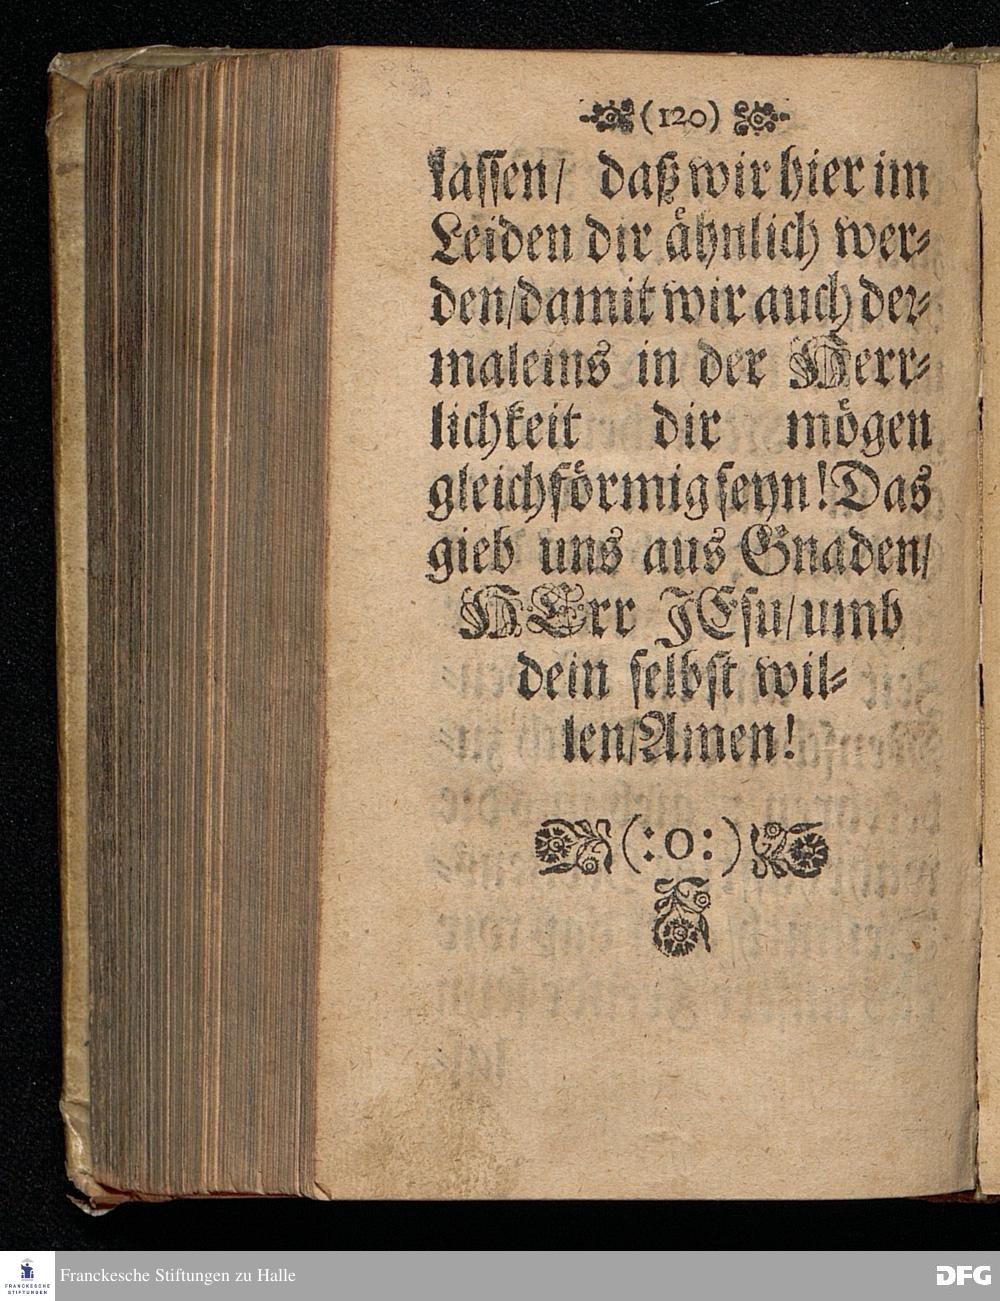 (120)
lassen/ daß wir hier im
Leiden dir aͤhnlich wer⸗
den/damit wir auch der⸗
maleins in der Herr⸗
lichkeit dir mögen
gleichförmig seyn! Das
gieb uns aus Gnaden/
HErr JEsu/umb
dein selbst wil⸗
len/Amen!
(:0:)
FRANCKESCHE
STIFTUNGEN
Franckesche Stiftungen zu Halle
DFG